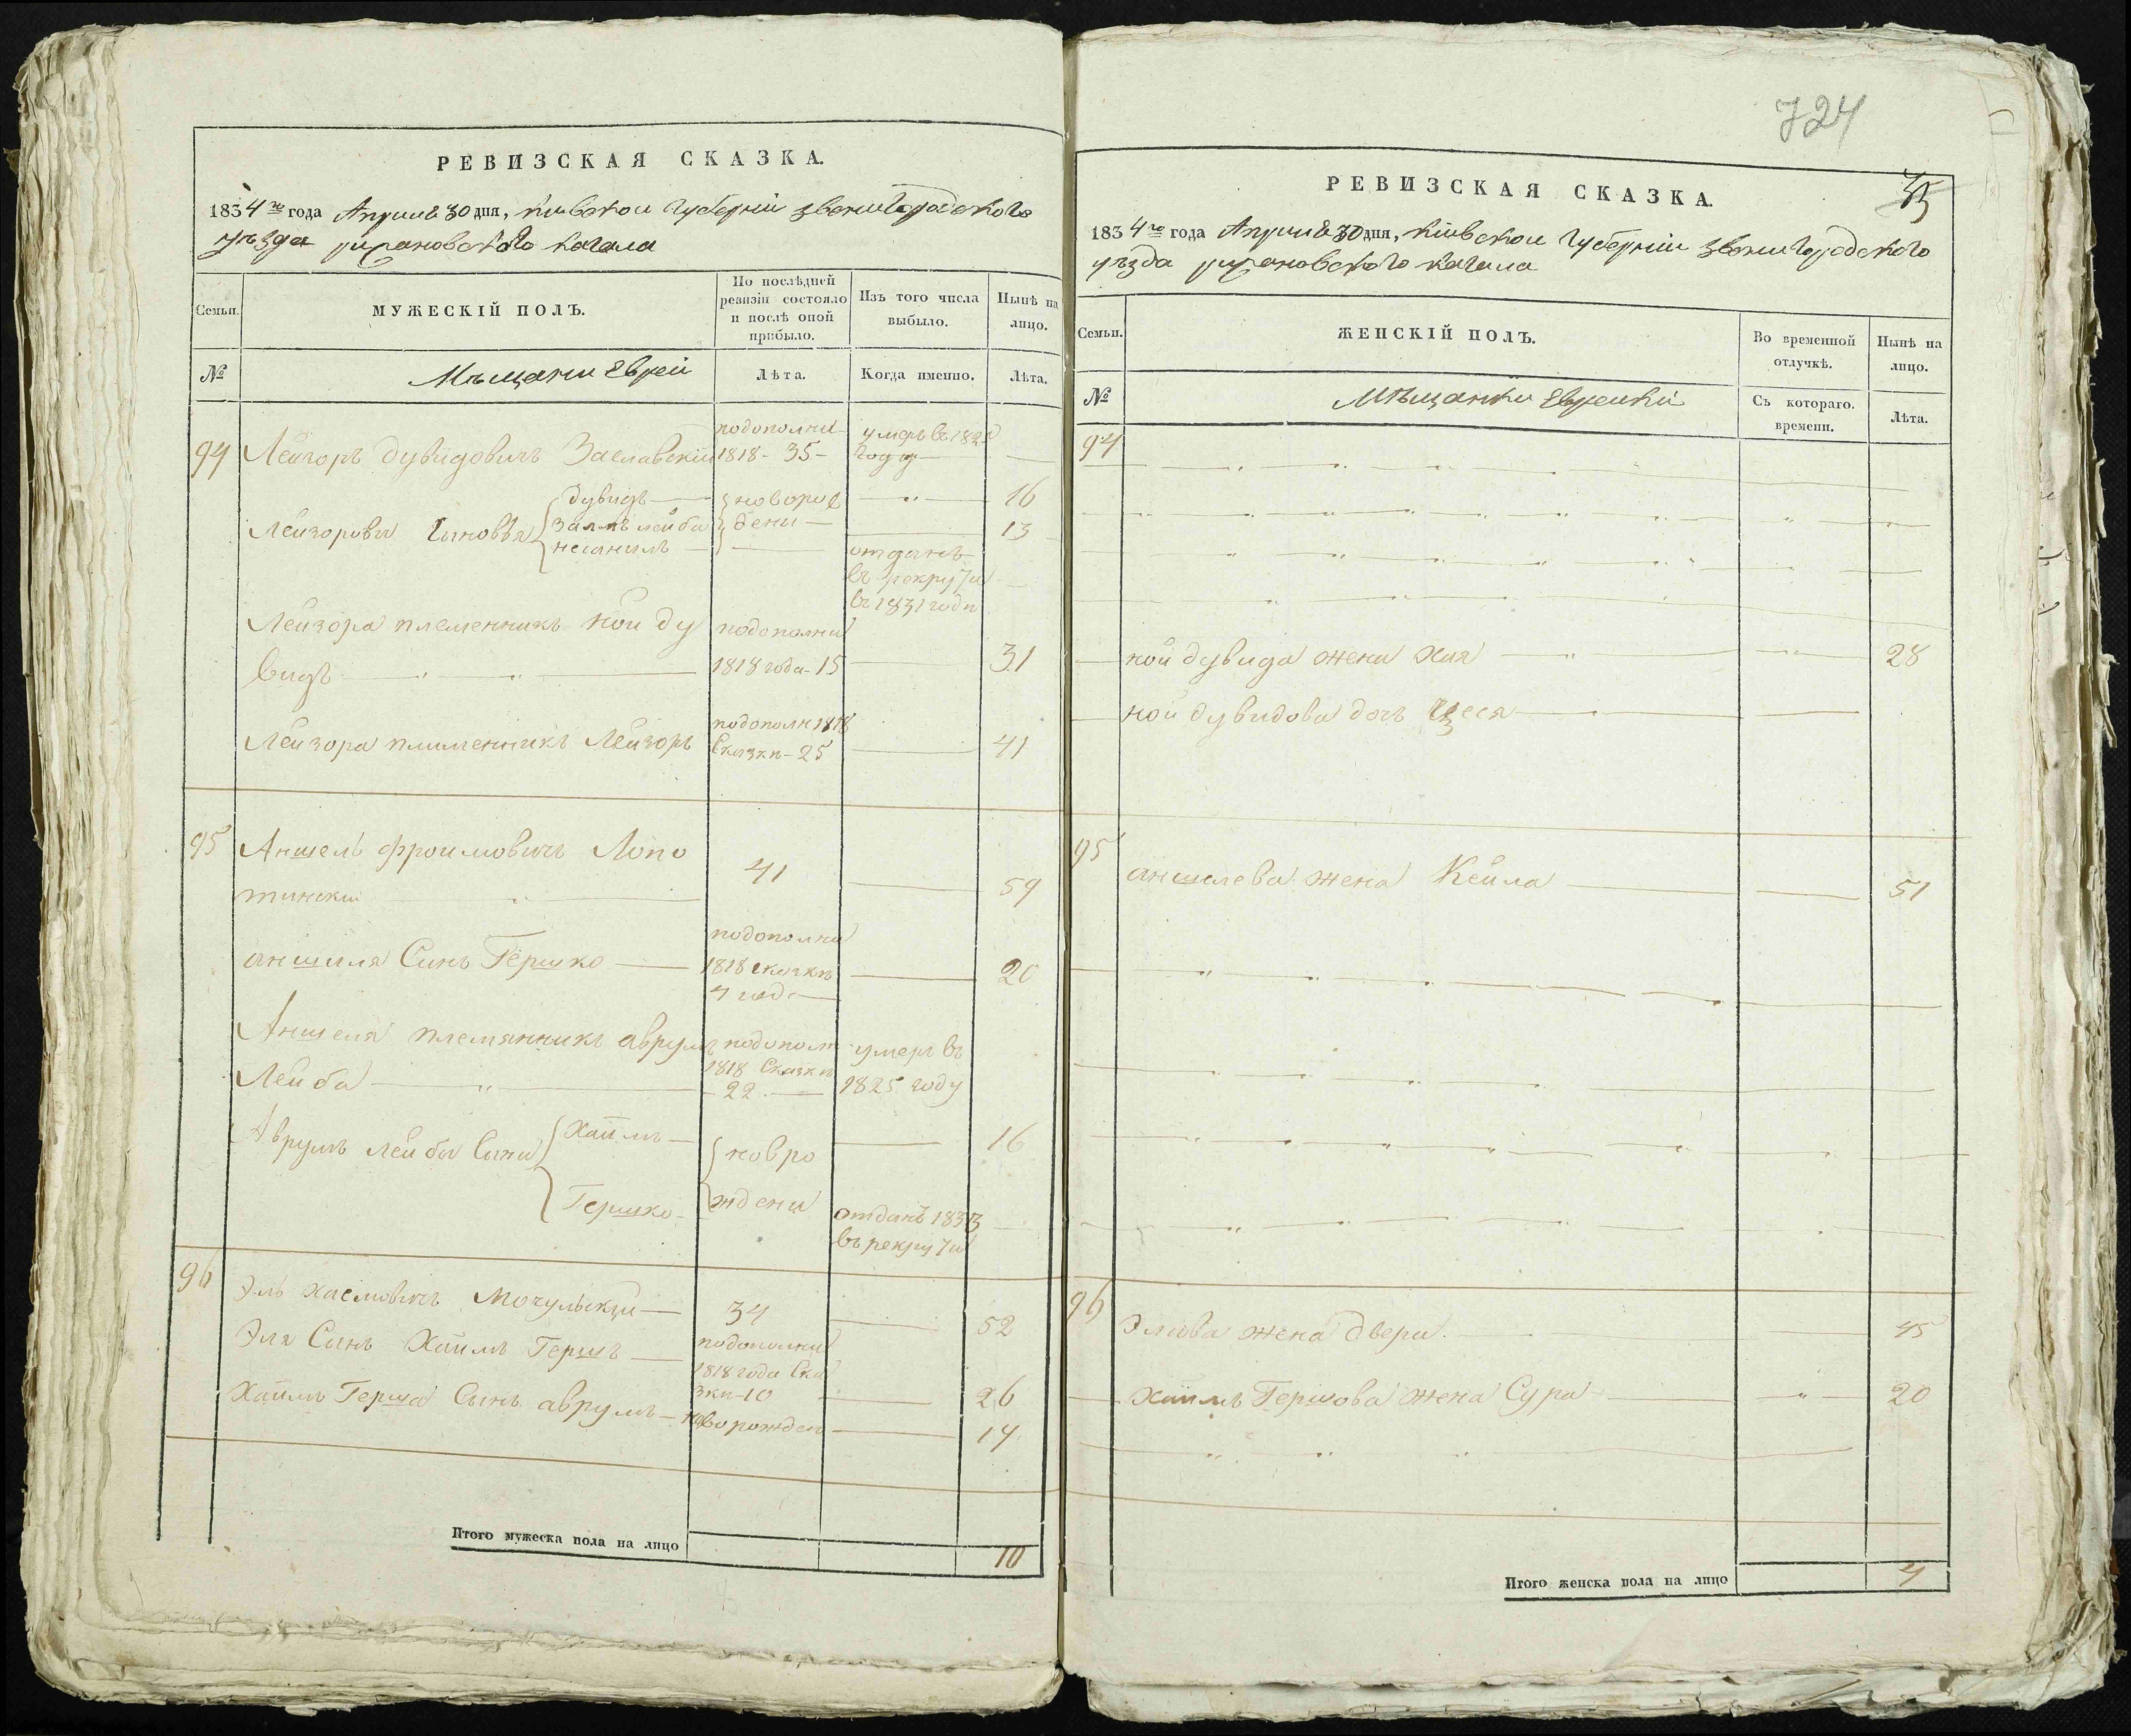 РЕВИЗСКАЯ СКАЗКА.
1834го года Априля 30 дня, киевской губерніи звенигородского
уезда рижановского кагала
Семьи.
МУЖЕСКІЙ ПОЛЪ.
По послѣдней ревизіи состояло и послѣ оной прибыло.
Изъ того числа выбыло.
Нынѣ на лицо.
№
Мѣщани Евреи
Лѣта.
Когда именно.
Лѣта.
94 Лейзоръ Дувидовичъ Заславскій
подополни
1818 - 35 -
умеръ въ
году
Лейзоровы Сыновья
Дувидъ
новорож
16
дени
13
отданъ
въ рекруты
въ 1831 году
Лейзора племенникъ кой ду
видъ
подополни
1818 года - 15
31
Лейзора племенникъ Лейзоръ
подополн 1818
Сказки - 25
41
95 Аншель Фроимовичъ Лопо
тински
41
59
аншиля Синъ Гершко
подополни
1818 сказки
4 года
20
Аншеля племянникъ аврумъ
Лейба
подополн
1818 Сказки
22
умеръ въ
1825 году
Аврумъ Лейбы Сыны
Хаимъ
новро
16
Гершко
ждени
отданъ 1833
въ рекруты
96 Эль Хаемовичъ Мочульскии
34
52
Эля Сынъ Хаимъ Гершъ
подополни
1818 года Ска
зки - 10
26
Хаимъ Герша Сынъ аврумъ
новорожден
14
Итого мужеска пола на лицо
10
724
35
РЕВИЗСКАЯ СКАЗКА.
1834го года Априля 30 дня, Кіивской Губерніи звенигородского
уѣзда рижановского кагала
Семьи.
ЖЕНСКІЙ ПОЛЪ.
Во временной отлучкѣ.
Нынѣ на лицо.
№
Мѣщанки Еврейки
Съ котораго. времени.
Лѣта.
94
кой дувида жена Хая
28
кой дувидова дочь
95
аншилева жена Кейла
51
96
Элива жена двера.
45
Хаимъ Гершова жена Сура
20
Итого женска пола на лицо
4